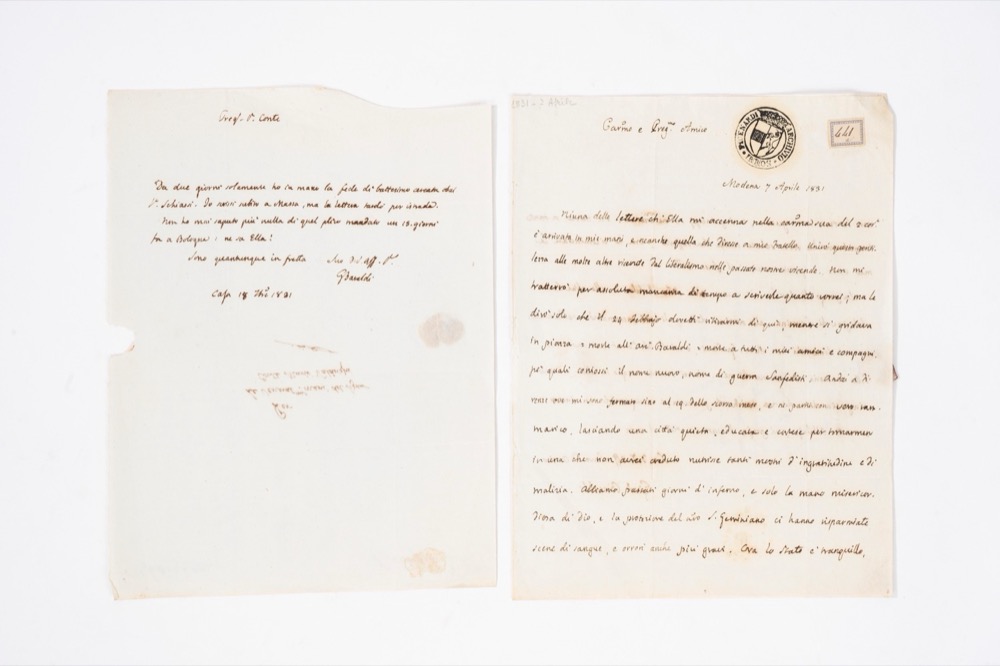 Preg. Sr. Conte
Da due giorni solamente ho in mano la fede di battesimo cercata dal
Sr. Schiassi. Io scrissi subito a Massa, ma la lettera tardò per istrada.
Non ho mai saputo più nulla di quel plico mandato un 15. giorni
fa a Bologna: ne sa Ella?
Sono quantunque in fretta Suo
GBaraldi
Casa 18 1831
1831 - 7 APRILE
Car.mo e Preg.mo Amico
ARCHIVIO
441
Modena 7 Aprile 1831
Niuna delle lettere ch'Ella mi accenna nella car.ma sua del 2 cor.
è arrivata in mie mani, e neanche quella che diresse a mio fratello. Unirò questa genti-
lezza alle molte altre ricevute dal liberalismo nelle passate nostre vicende. Non mi
tratterrò per assoluta mancanza di tempo a scriverle quanto vorrei; ma le
dirò solo che il 24 Febbrajo dovetti ritirarmi di qui, mentre si gridava
in piazza morte all' Baraldi morte a tutti i miei amici e compagni,
pe' quali coniossi il nome nuovo, nome di guerra Sanfedisti. Andai a Fi-
renze ove mi sono fermato sino al 29. dello scorso mese, e ne partii con vero ram-
marico, lasciando una città quieta, educata e cortese per tornarmene
in una che non avrei creduto nutrisse tanti mostri d'ingratitudine e di
malizia. Abbiamo passati giorni d'inferno, e solo la mano misericor-
diosa di Dio, e la protezione del nostro S. Geminiano ci hanno risparmiate
scene di sangue, e orrori anche più gravi. Ora lo Stato è tranquillo,